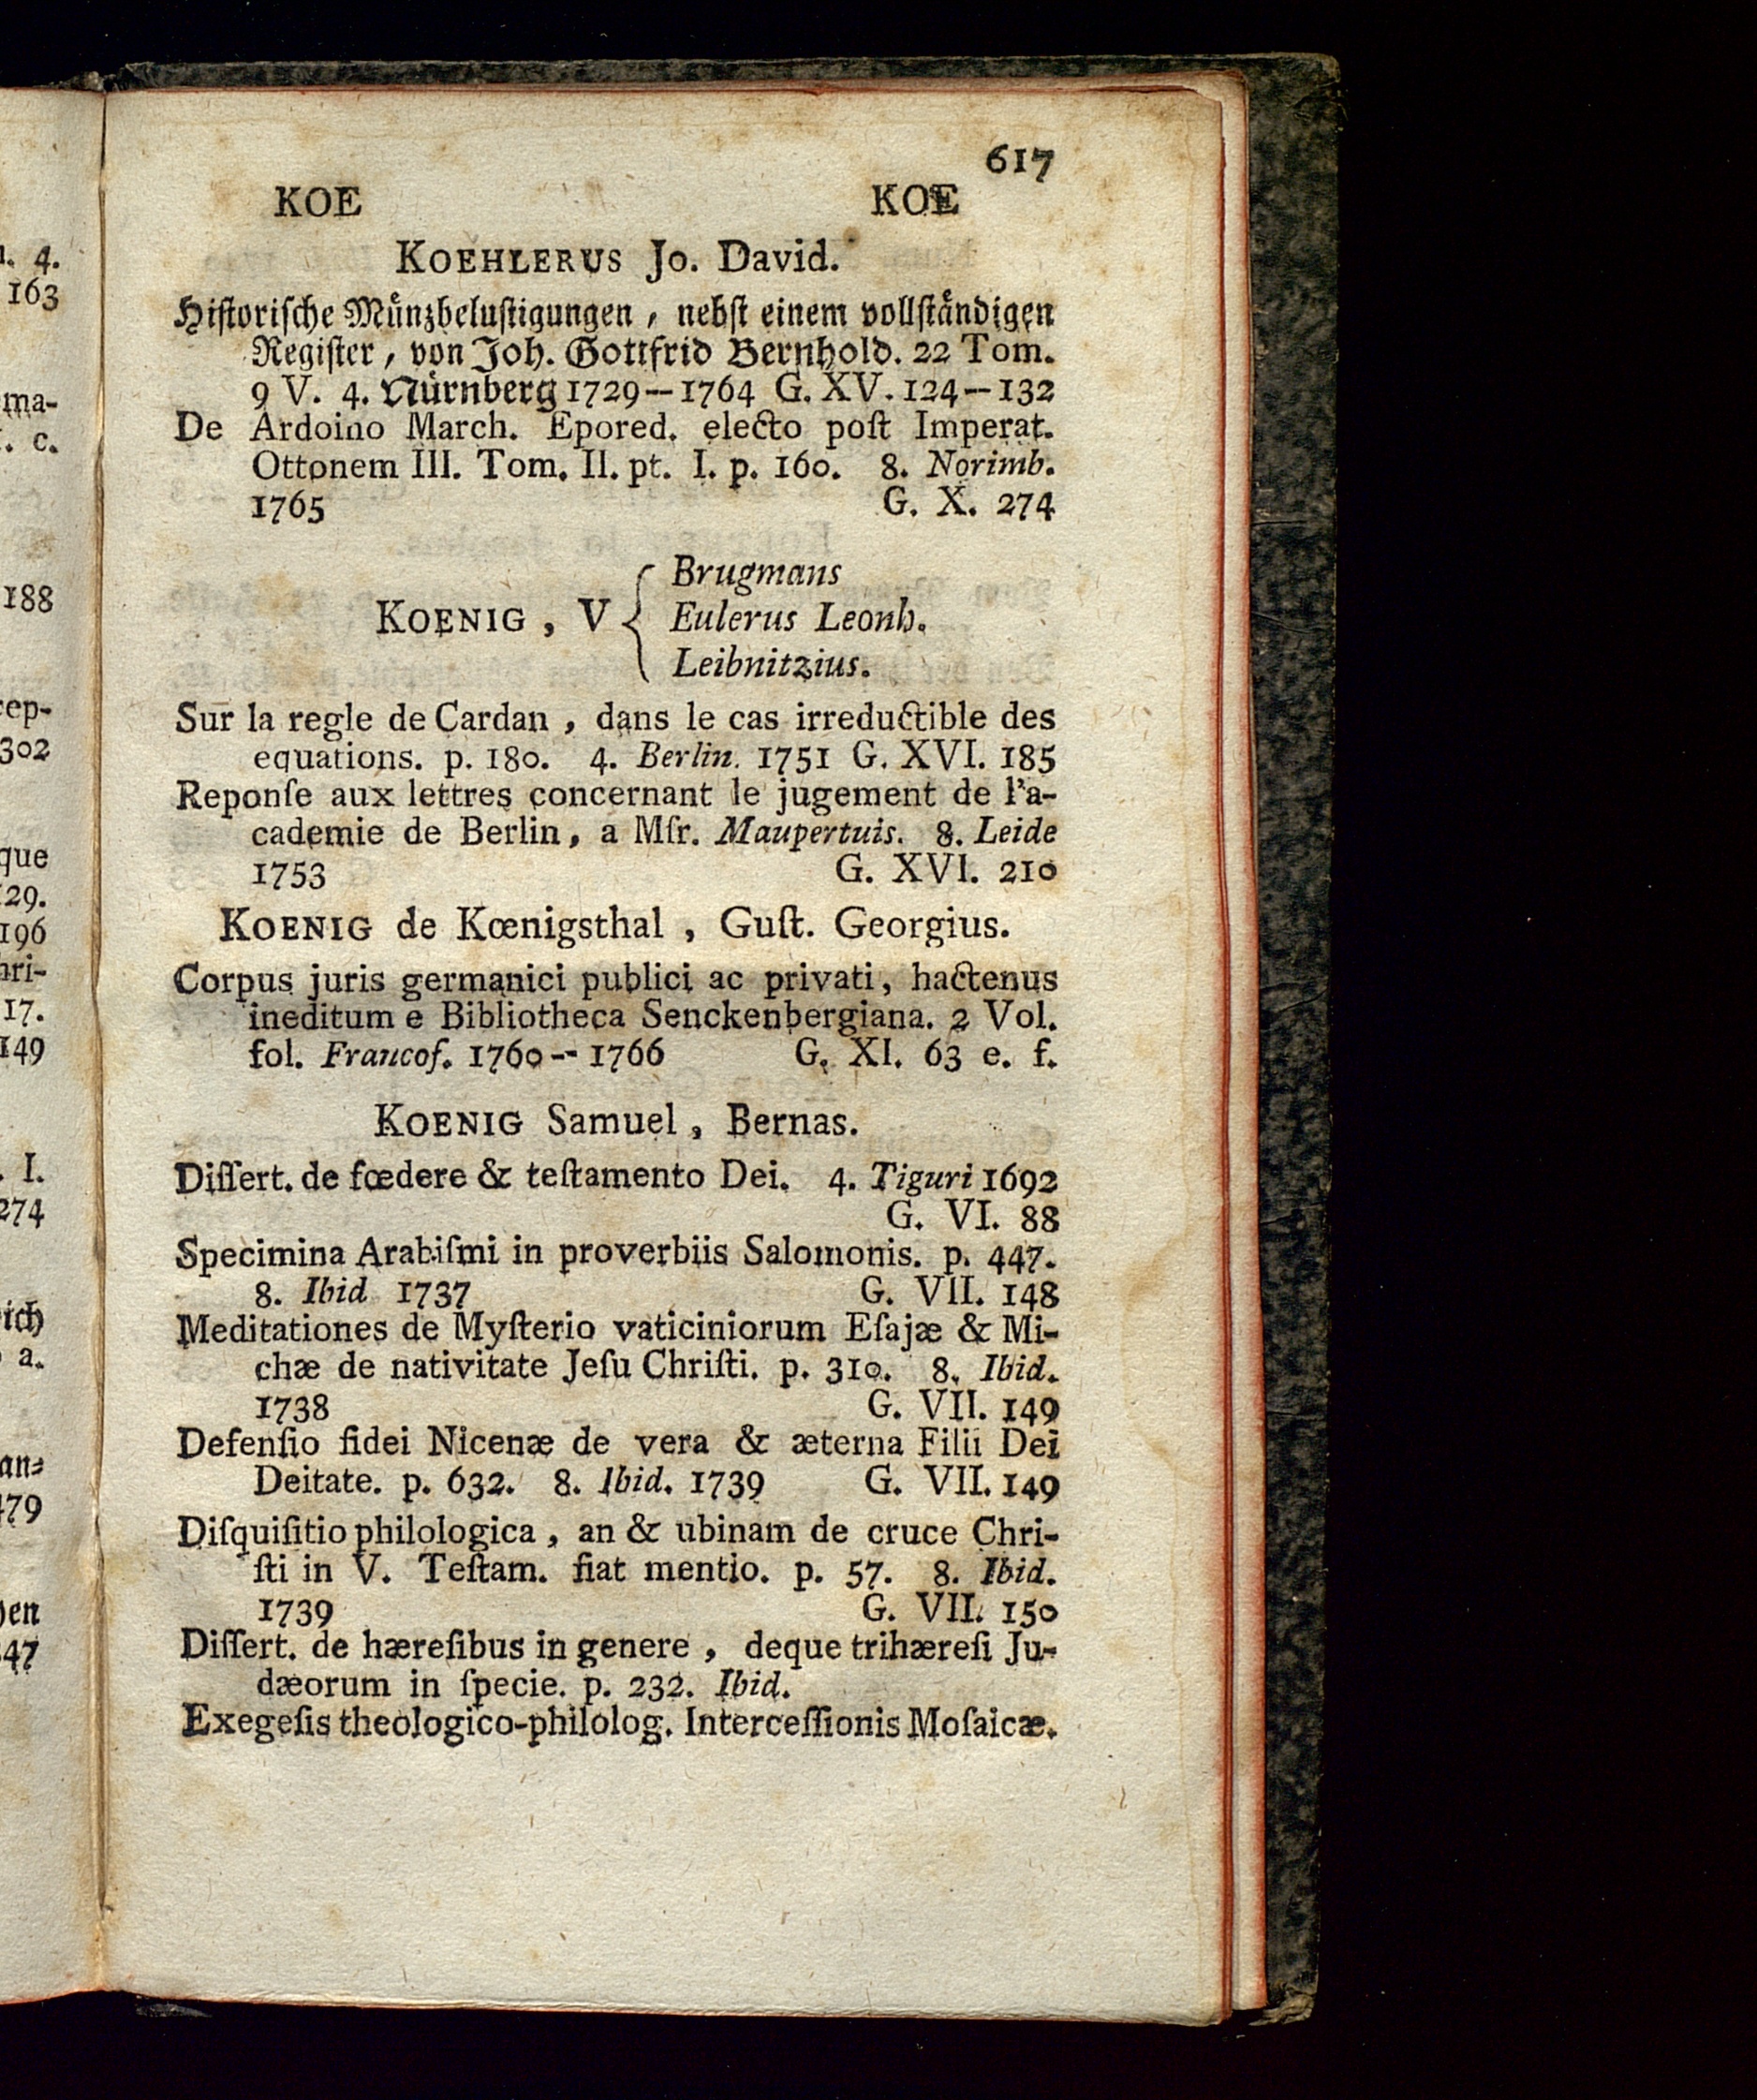 617
KOE KOE
KOEHLERUS Jo. David.
Hiſtoriſche Münzbeluſtigungen, nebſt einem vollſtändigen
Regiſter, von Joh. Gottfrid Bernhold. 22 Tom.
9 V. 4. Nürnberg 1729--1764 G. XV. 124--132
De Ardoino March. Epored. electo poſt Imperat.
Ottonem III. Tom. II. pt. I. p. 160. 8. Norimb.
1765 G. X. 274
KOENIG, V { Brugmans
Eulerus Leonh.
Leibnitzius.
Sur la regle de Cardan, dans le cas irreductible des
equations. p. 180. 4. Berlin. 1751 G. XVI. 185
Reponſe aux lettres concernant le jugement de l'a-
cademie de Berlin, a Mſr. Maupertuis. 8. Leide
1753 G. XVI. 210
KOENIG de Kœnigsthal, Guſt. Georgius.
Corpus juris germanici publici ac privati, hactenus
ineditum e Bibliotheca Senckenbergiana. 2 Vol.
fol. Francof. 1760--1766 G. XI. 63 e. f.
KOENIG Samuel, Bernas.
Diſſert. de fœdere & teſtamento Dei. 4. Tiguri 1692
G. VI. 88
Specimina Arabiſmi in proverbiis Salomonis. p. 447.
8. Ibid 1737 G. VII. 148
Meditationes de Myſterio vaticiniorum Eſajæ & Mi-
chæ de nativitate Jeſu Chriſti. p. 310. 8. Ibid.
1738 G. VII. 149
Defenſio fidei Nicenæ de vera & æterna Filii Dei
Deitate. p. 632. 8. Ibid. 1739 G. VII. 149
Diſquiſitio philologica, an & ubinam de cruce Chri-
ſti in V. Teſtam. fiat mentio. p. 57. 8. Ibid.
1739 G. VII. 150
Diſſert. de hæreſibus in genere, deque trihæreſi Ju-
dæorum in ſpecie. p. 232. Ibid.
Exegeſis theologico-philolog. Interceſſionis Moſaicæ.